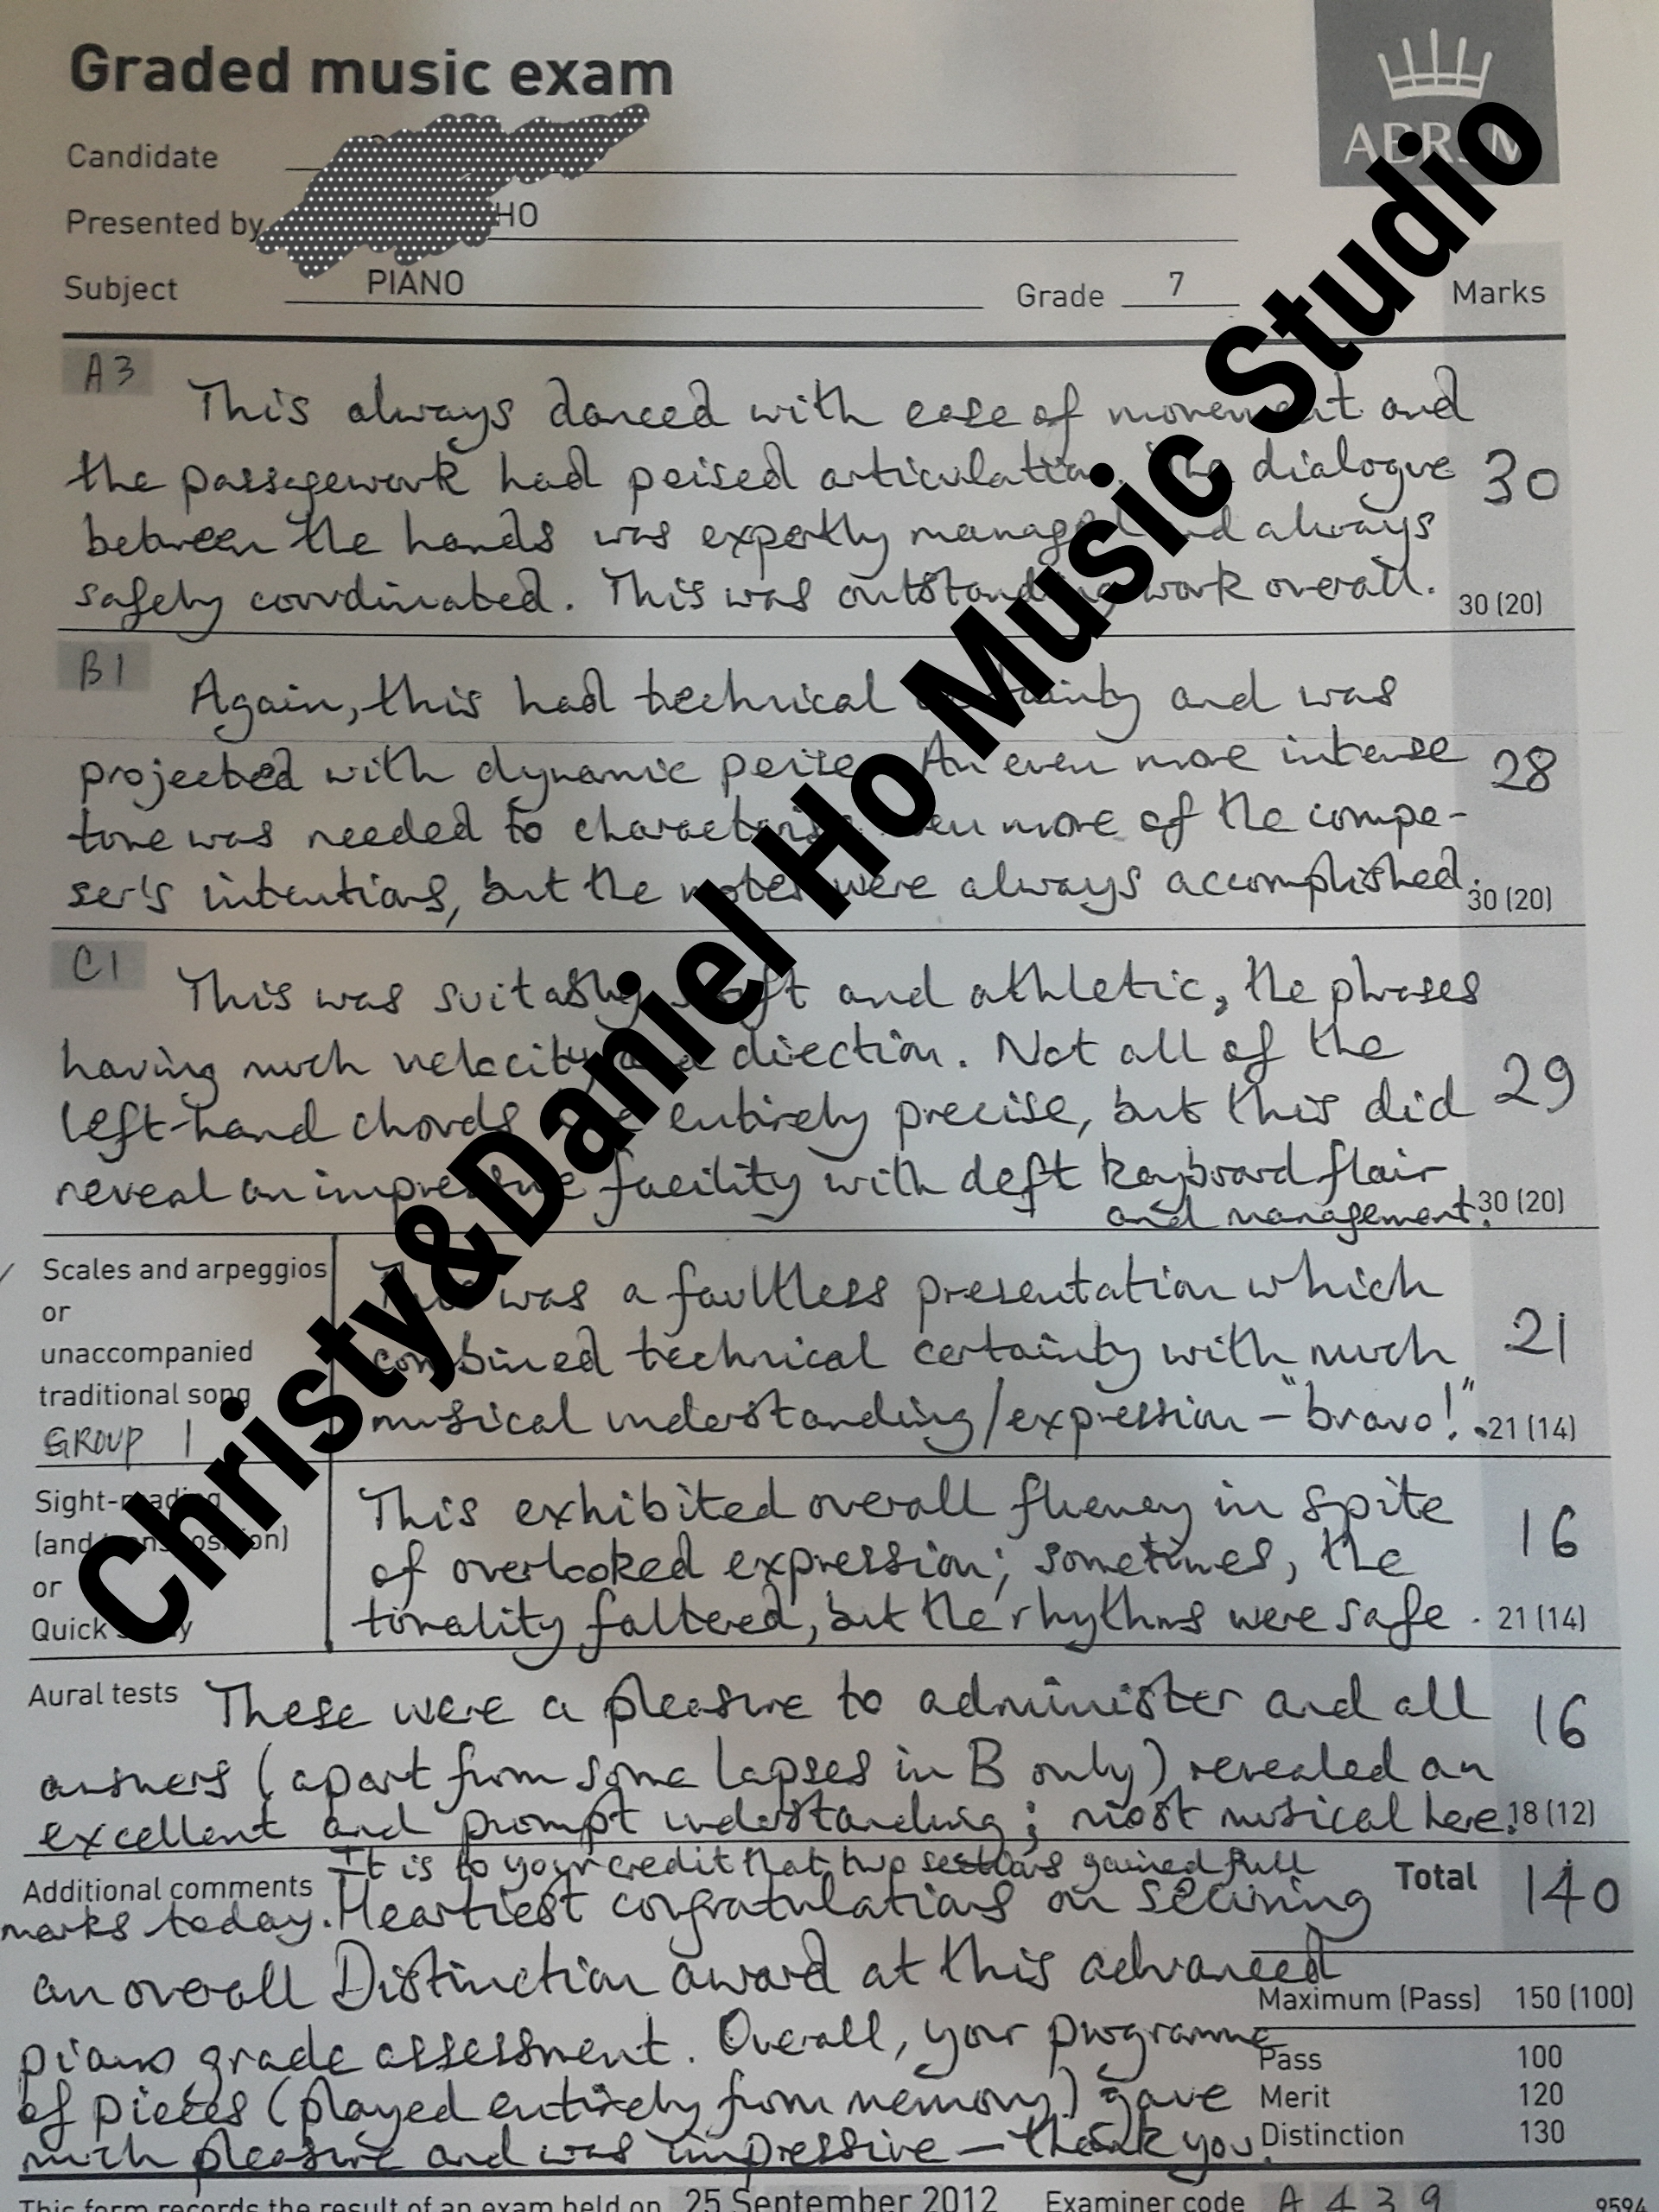 Graded music exam
ABRSM
Candidate
Presented by HO
Subject PIANO Grade 7 Marks
A3
This always danced with ease of movement and
the passagework had poised articulation. The dialogue 30
between the hands was expertly managed and always
safely coordinated. This was outstanding work overall. 30 (20)
B1
Again, this had technical certainty and was
projected with dynamic poise. An even more intense 28
tone was needed to characterise even more of the compo-
ser's intentions, but the notes were always accomplished. 30 (20)
C1
This was suitably swift and athletic, the phrases
having much velocity and direction. Not all of the
left-hand chords were entirely precise, but this did 29
reveal an impressive facility with deft keyboard flair
and management. 30 (20)
Scales and arpeggios
or
unaccompanied
traditional song
GROUP 1
This was a faultless presentation which
combined technical certainty with much 21
musical understanding/expression - "bravo!". 21 (14)
Sight-reading
(and transposition)
or
Quick study
This exhibited overall fluency in spite
of overlooked expression; sometimes, the 16
tonality faltered, but the rhythms were safe. 21 (14)
Aural tests These were a pleasure to administer and all 16
answers (apart from some lapses in B only) revealed an
excellent and prompt understanding; most musical here. 18 (12)
Additional comments It is to your credit that two sections gained full
marks today. Heartiest congratulations on securing
an overall Distinction award at this advanced
piano grade assessment. Overall, your programme
of pieces (played entirely from memory) gave
much pleasure and was impressive — thank you.
Total 140
Maximum (Pass) 150 (100)
Pass 100
Merit 120
Distinction 130
This form records the result of an exam held on 25 September 2012 Examiner code A 4 3 9 9594
Christy&Daniel Ho Music Studio